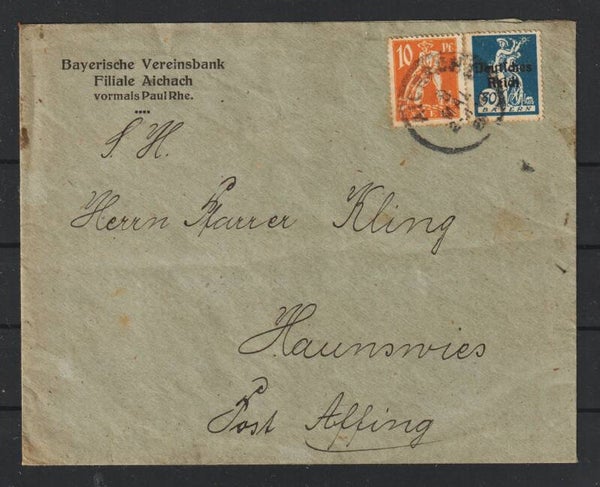 Bayerische Vereinsbank
Filiale Aichach
vormals Paul Rhe.
10 PF
Deutsches
Reich
50
BAYERN
S. H.
Herrn Pfarrer Kling
Haunswies
Post Affing